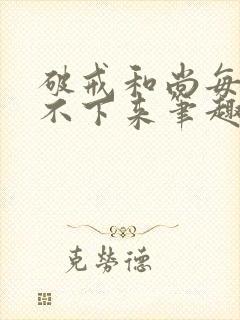 破戒和尚每
不下来笔趣
克劳德